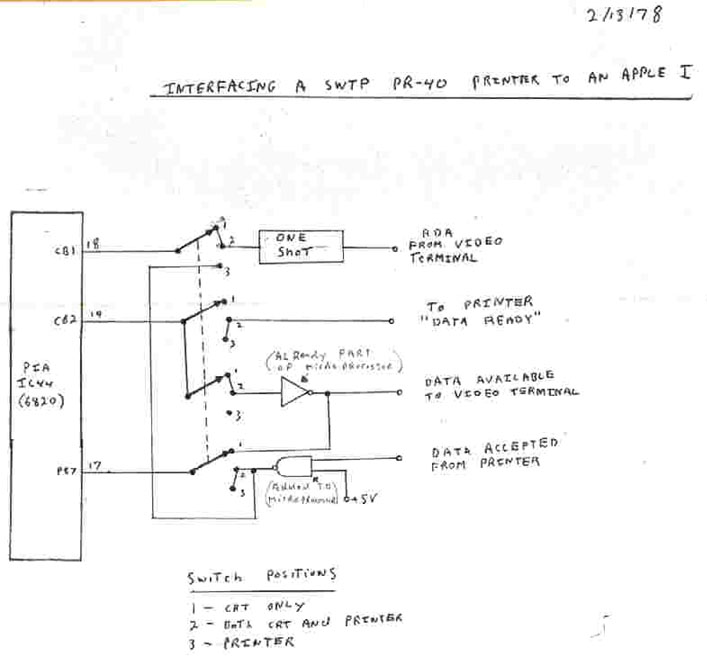 2/13/78
INTERFACING A SWTP PR-40 PRINTER TO AN APPLE I
CB1 18
1
2
3
ONE
SHOT
RDA
FROM VIDEO
TERMINAL
CB2 19
1
2
3
TO PRINTER
"DATA READY"
PIA
IC44
(6820)
(ALREADY PART
OF MICROPROCESSOR)
1
2
3
DATA AVAILABLE
TO VIDEO TERMINAL
PB7 17
1
2
3
(ADDED TO)
MICROPROCESSOR
+5V
DATA ACCEPTED
FROM PRINTER
SWITCH POSITIONS
1 - CRT ONLY
2 - BOTH CRT AND PRINTER
3 - PRINTER